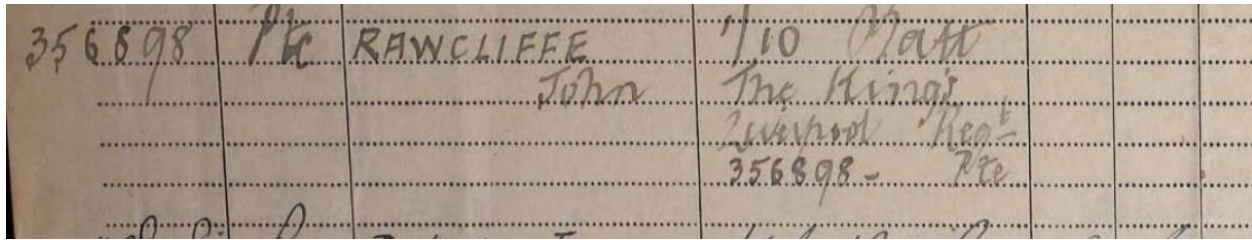 356898 Pte RAWCLIFFE 1/10 Batt
John The King's
Liverpool Regt
356898 - Pte